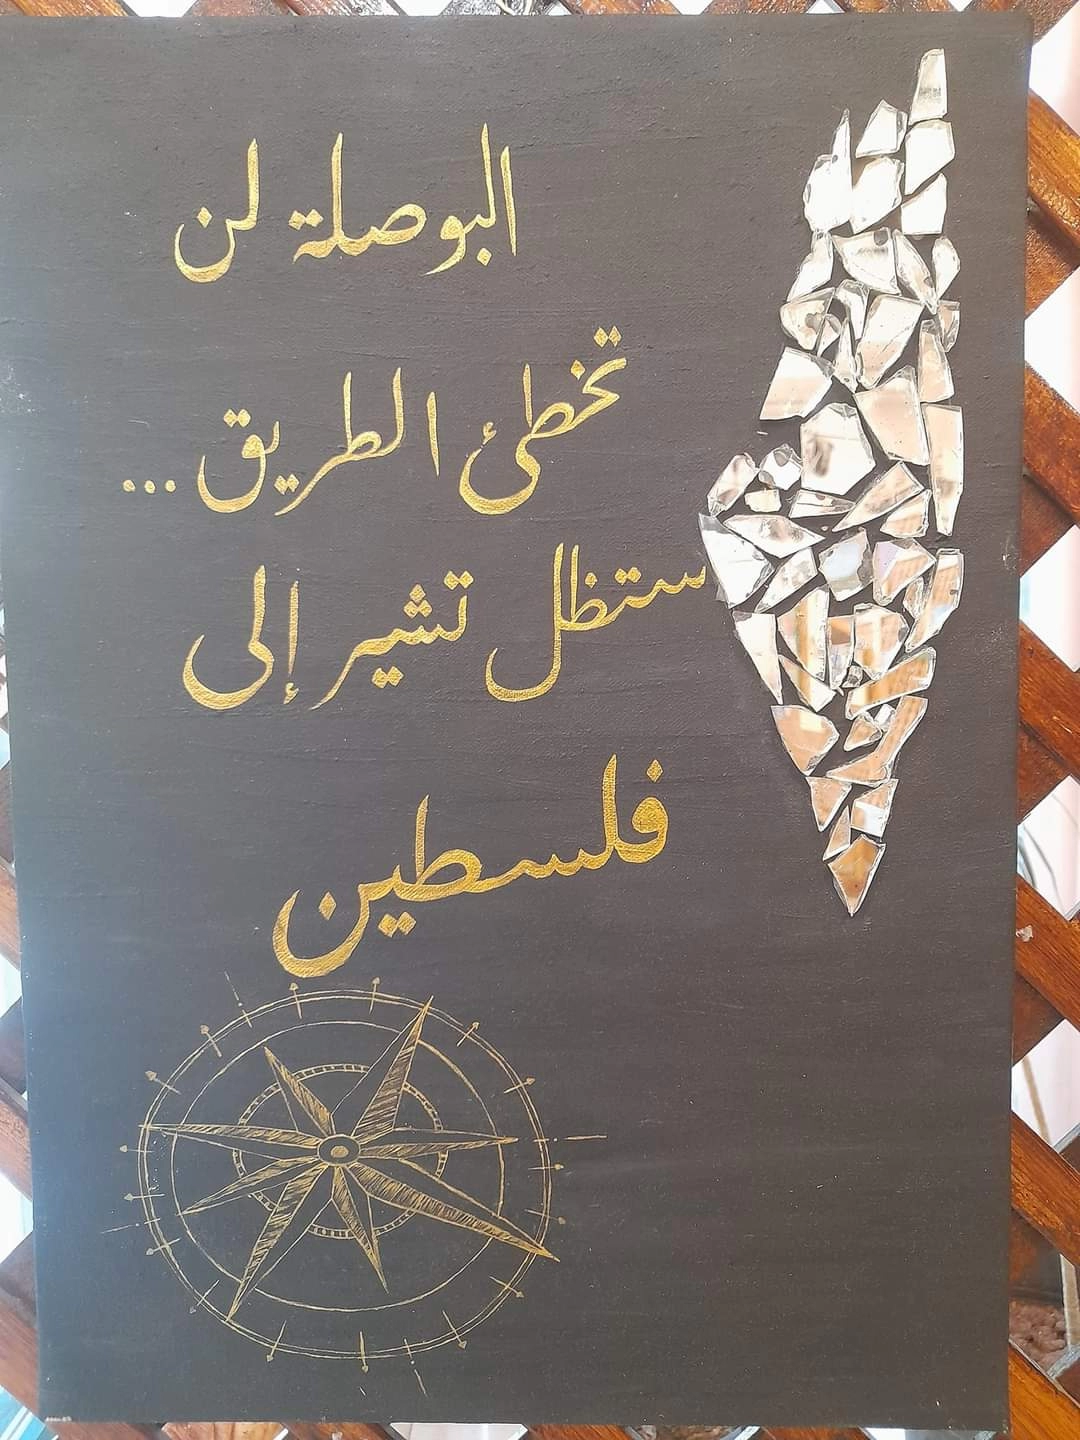 البوصلة لن
تخطئ الطريق ...
ستظل تشير إلى
فلسطين